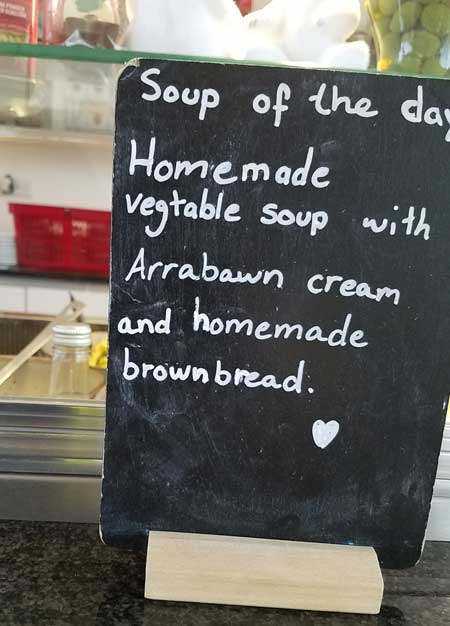 Soup of the day
Homemade
vegtable soup with
Arrabawn cream
and homemade
brownbread.